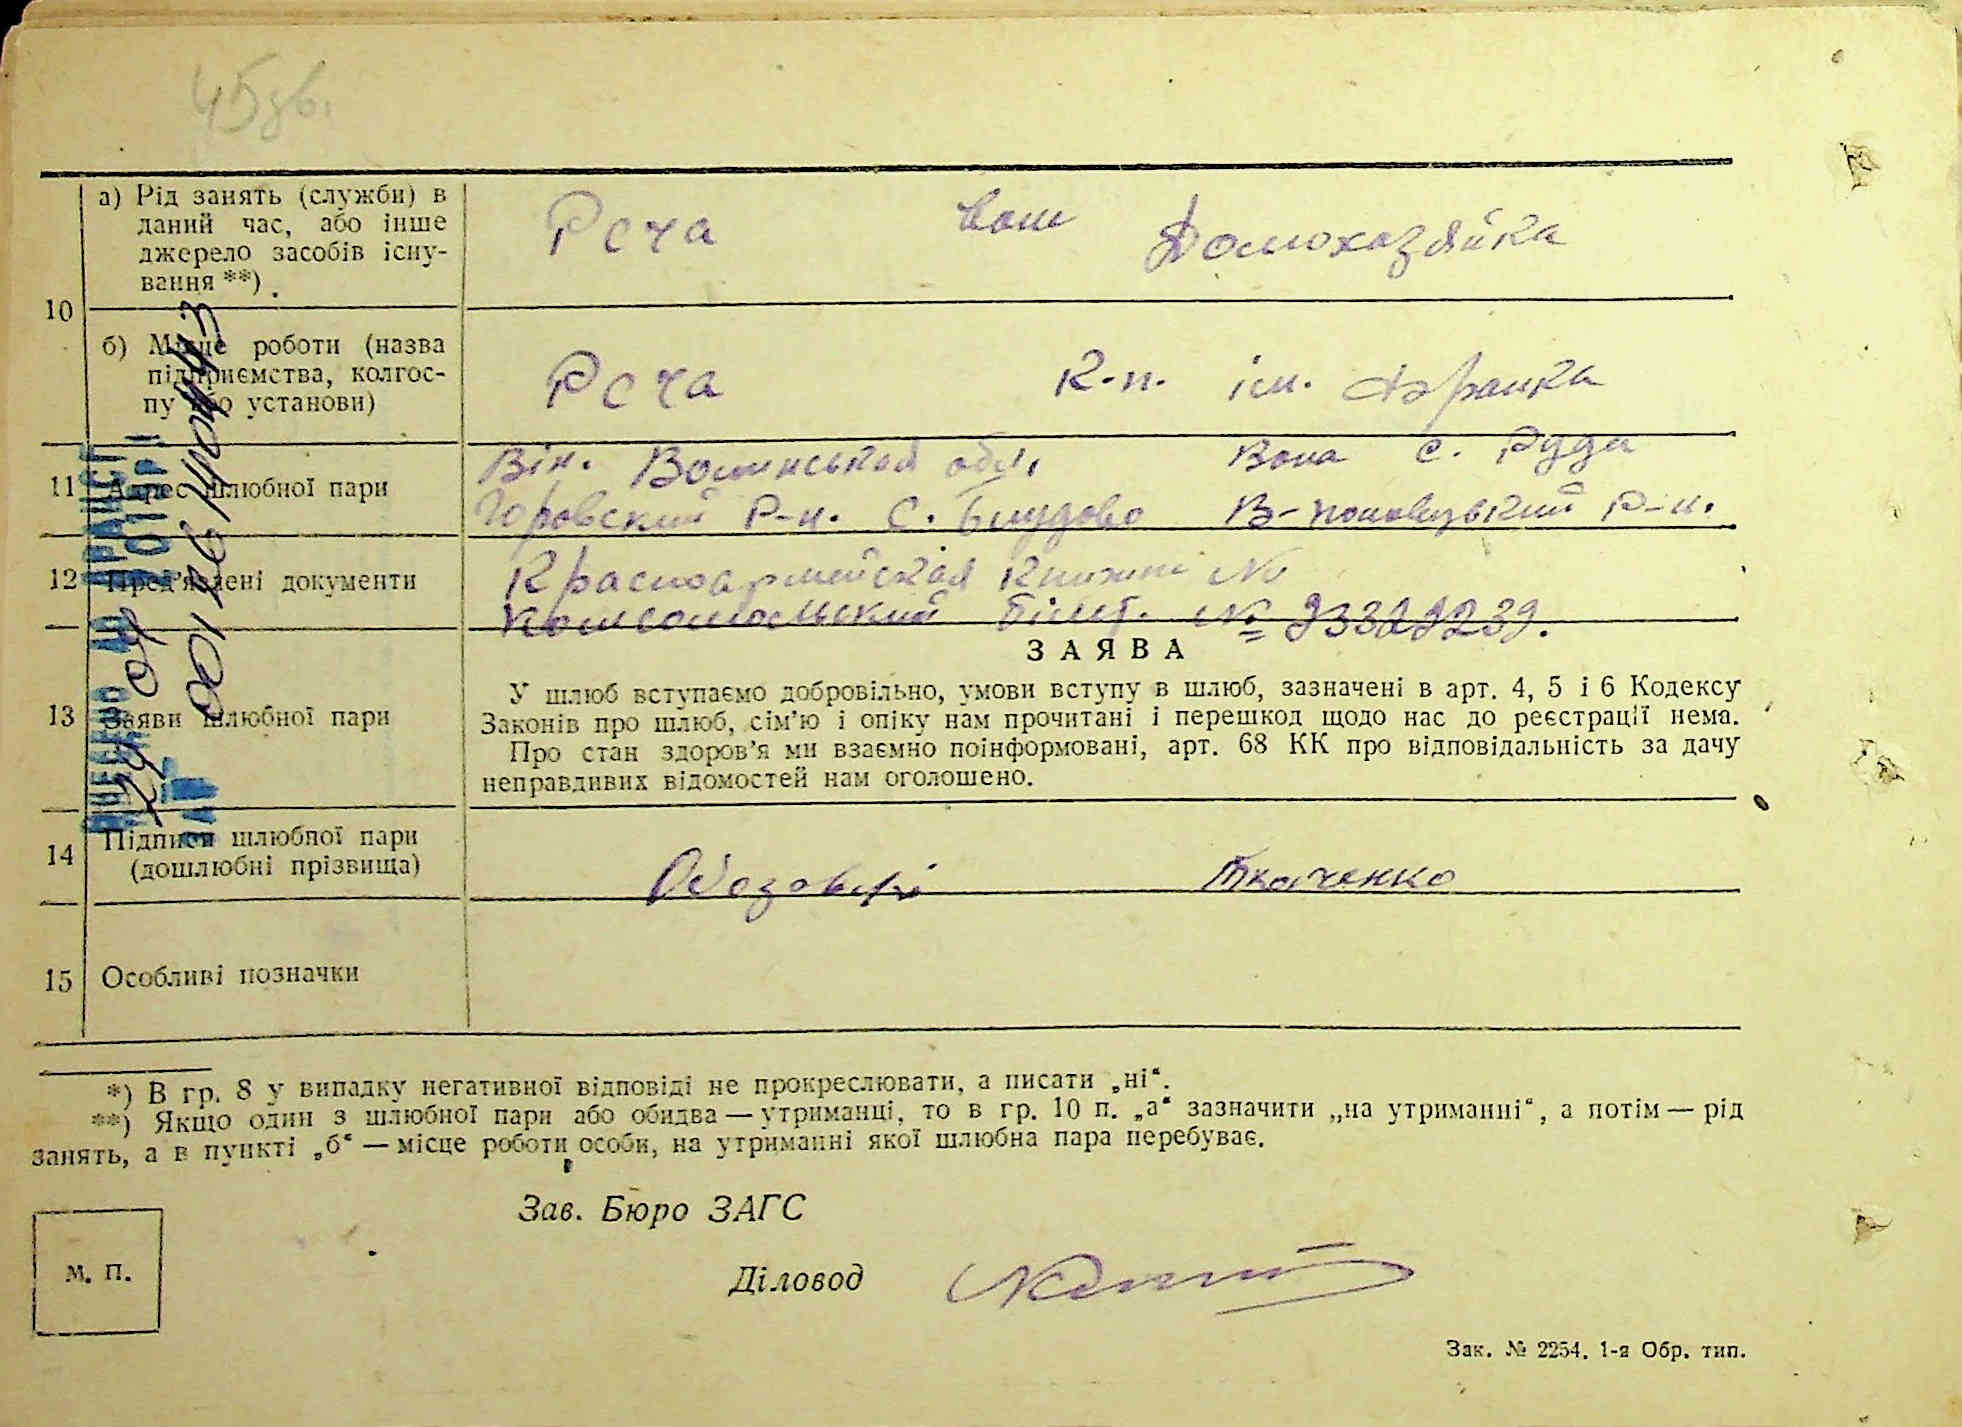 45зв.
а) Рід занять (служби) в
даний час, або інше
джерело засобів існу-
вання **)
Рсча Домохазяйка
10
б) Місце роботи (назва
підприємства, колгос-
пу або установи)
Рсча к-п. ім. Франка
11 Адрес шлюбної пари
Він. Волинськая обл. Вона с. Руда
р-н. с. Блудово В-Половецький р-н.
12 Пред'явлені документи
Красноармейская книжка №
Комсомольский білет. № 93329239.
ЗАЯВА
13 Заяви шлюбної пари
У шлюб вступаємо добровільно, умови вступу в шлюб, зазначені в арт. 4, 5 і 6 Кодексу
Законів про шлюб, сім'ю і опіку нам прочитані і перешкод щодо нас до реєстрації нема.
Про стан здоров'я ми взаємно поінформовані, арт. 68 КК про відповідальність за дачу
неправдивих відомостей нам оголошено.
14 Підписи шлюбної пари
(дошлюбні прізвища)
Ткаченко
15 Особливі позначки
*) В гр. 8 у випадку негативної відповіді не прокреслювати, а писати „ні“.
**) Якщо один з шлюбної пари або обидва — утриманці, то в гр. 10 п. „а“ зазначити „на утриманні“, а потім — рід
занять, а в пункті „б“ — місце роботи особи, на утриманні якої шлюбна пара перебуває.
Зав. Бюро ЗАГС
Діловод
М. П.
Зак. № 2254. 1-а Обр. тип.